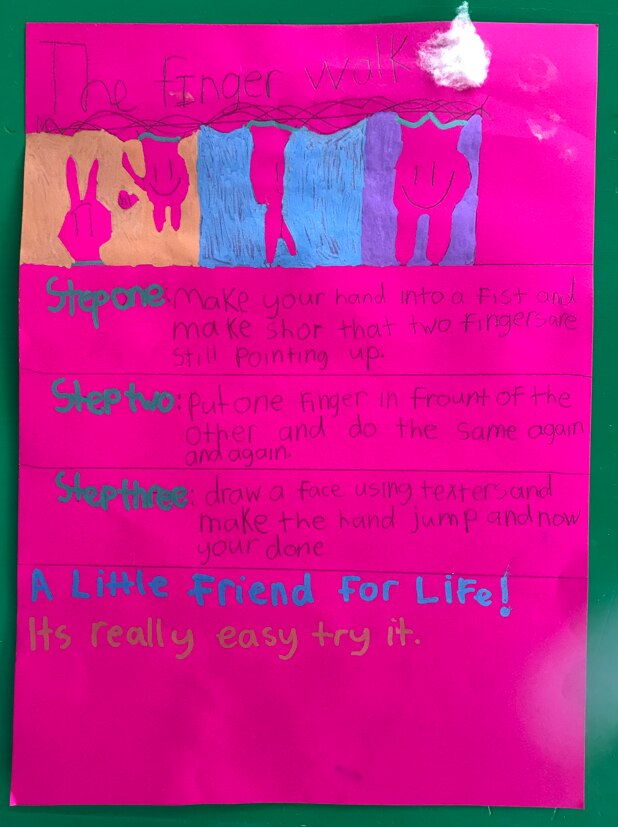 The finger walk
Step one: Make your hand into a Fist and
make shor that two fingers are
still pointing up.
Step two: put one finger in frount of the
other and do the same again
and again.
Step three: draw a face using texters and
make the hand jump and now
your done
A Little friend for Life!
Its really easy try it.